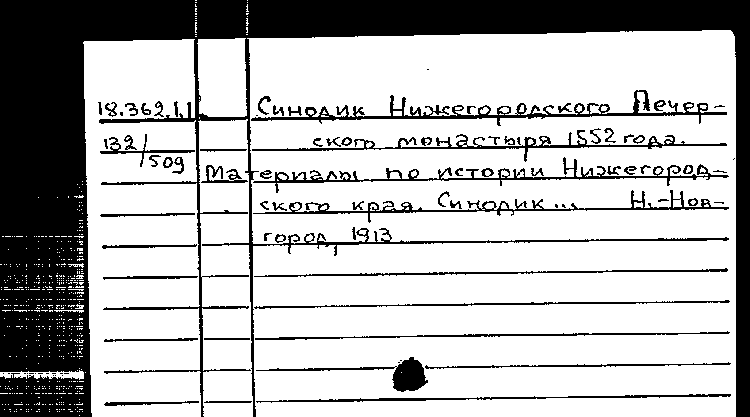 18.362.1.1. Синодик Нижегородского Печер-
132/509 ского монастыря 1552 года.
Материалы по истории Нижегород-
ского края. Синодик... Н.-Нов-
город, 1913